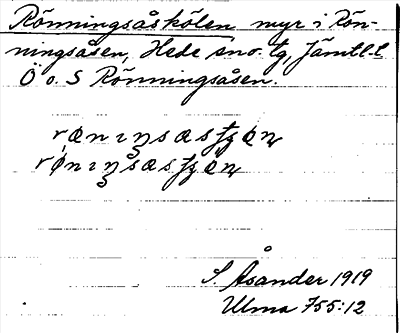 Rönningsåskölen, myr i Rön-
ningsåsen, Hede sn o. tg, Jämtl. l.
Ö o. S Rönningsåsen.
S. Åsander 1919
Ulma 755:12